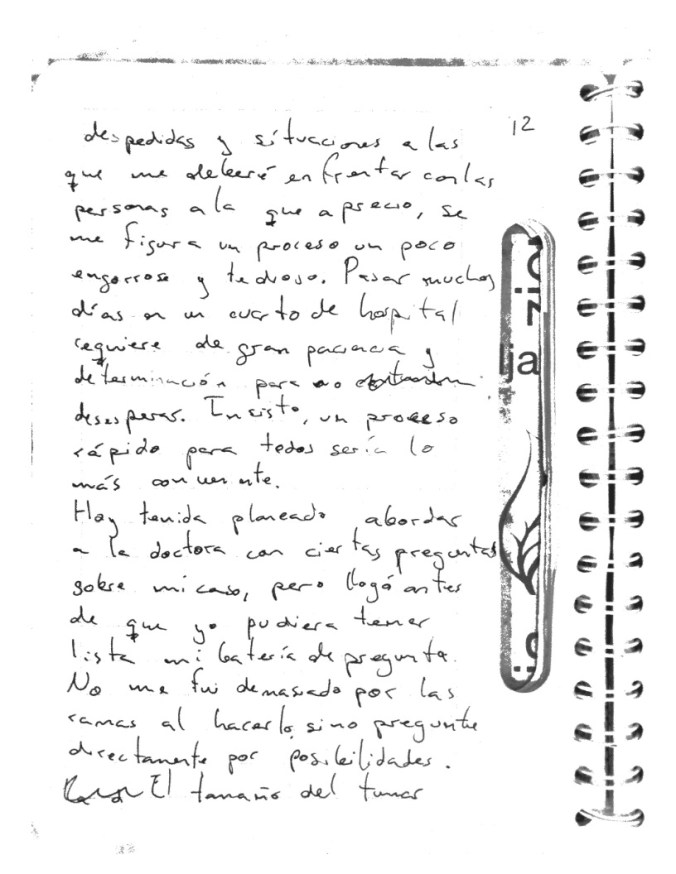 12
despedidas y situaciones a las
que me deberé enfrentar con las
personas a la que aprecio, se
me figura un proceso un poco
engorroso y tedioso. Pasar muchos
días en un cuarto de hospital
requiere de gran paciencia y
determinación para no
desesperar. Insisto, un proceso
rápido para todos sería lo
más conveniente.
Hoy tenida planeado abordar
a la doctora con ciertas preguntas
sobre mi caso, pero llegó antes
de que yo pudiera tener
lista mi batería de pregunta.
No me fui demasiado por las
ramas al hacerlo, sino pregunte
directamente por posibilidades.
El tamaño del tumor
zio
lja